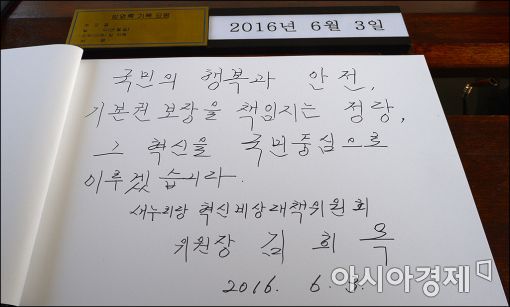 방명록 기록 요령
2016년 6월 3일
국민의 행복과 안전,
기본권 보장을 책임지는 정당,
그 혁신을 국민중심으로
이루겠습니다.
새누리당 혁신비상대책위원회
위원장 김희옥
2016. 6. 3.
아시아경제